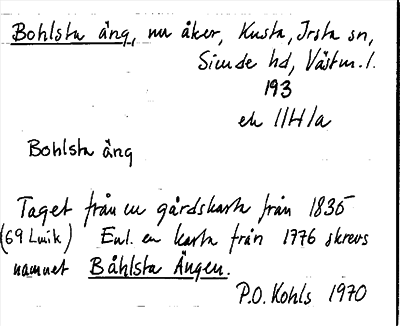 Bohlsta äng, nu åker, Kusta, Irsta sn,
Siende hd, Västm. l.
193
ek 11H1a
Bohlsta äng
Taget från en gårdskarta från 1835
(69 Lmik) Enl. en karta från 1776 skrevs
namnet Båhlsta Ängen.
P.O. Kohls 1970